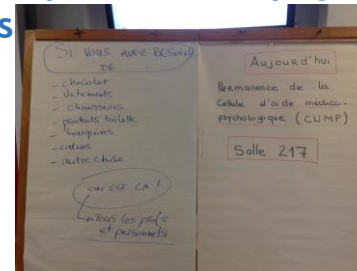 s
SI VOUS AVEZ BESOIN
DE
- chocolat
- vêtements
- chaussons
- produits toilette
- bouquins
- calins
- autre chose
ON EST LÀ !
→ TOUS les profs
et personnels
Aujourd'hui
Permanence de la
Cellule d'aide médico-
psychologique (CUMP)
Salle 217